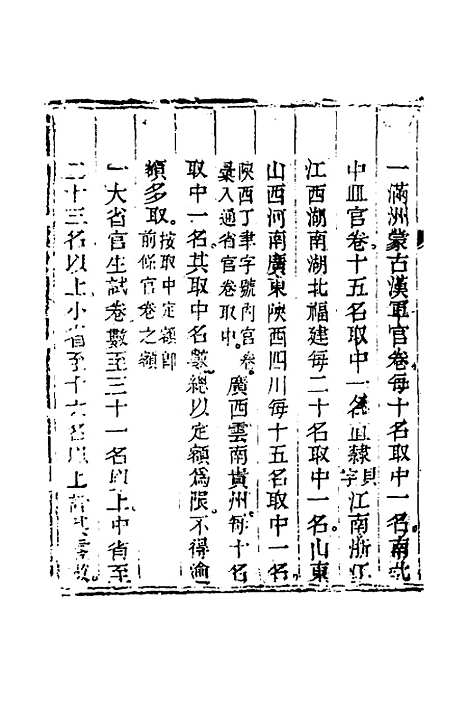 一滿州蒙古漢軍官卷每十名取中一名南北
中皿官卷十五名取中一名直隸貝字江南浙江
江西湖南湖北福建每二十名取中一名山東
山西河南廣東陜西四川每十五名取中一名
陜西丁聿字號內官卷彙入通省官卷取中廣西雲南貴州每十名
取中一名其取中名數總以定額為限不得渝
額多取按取中定額即前條官卷之額
一大省官生試卷數至三十一名以上中省至
二十三名以上小省至十六名以上